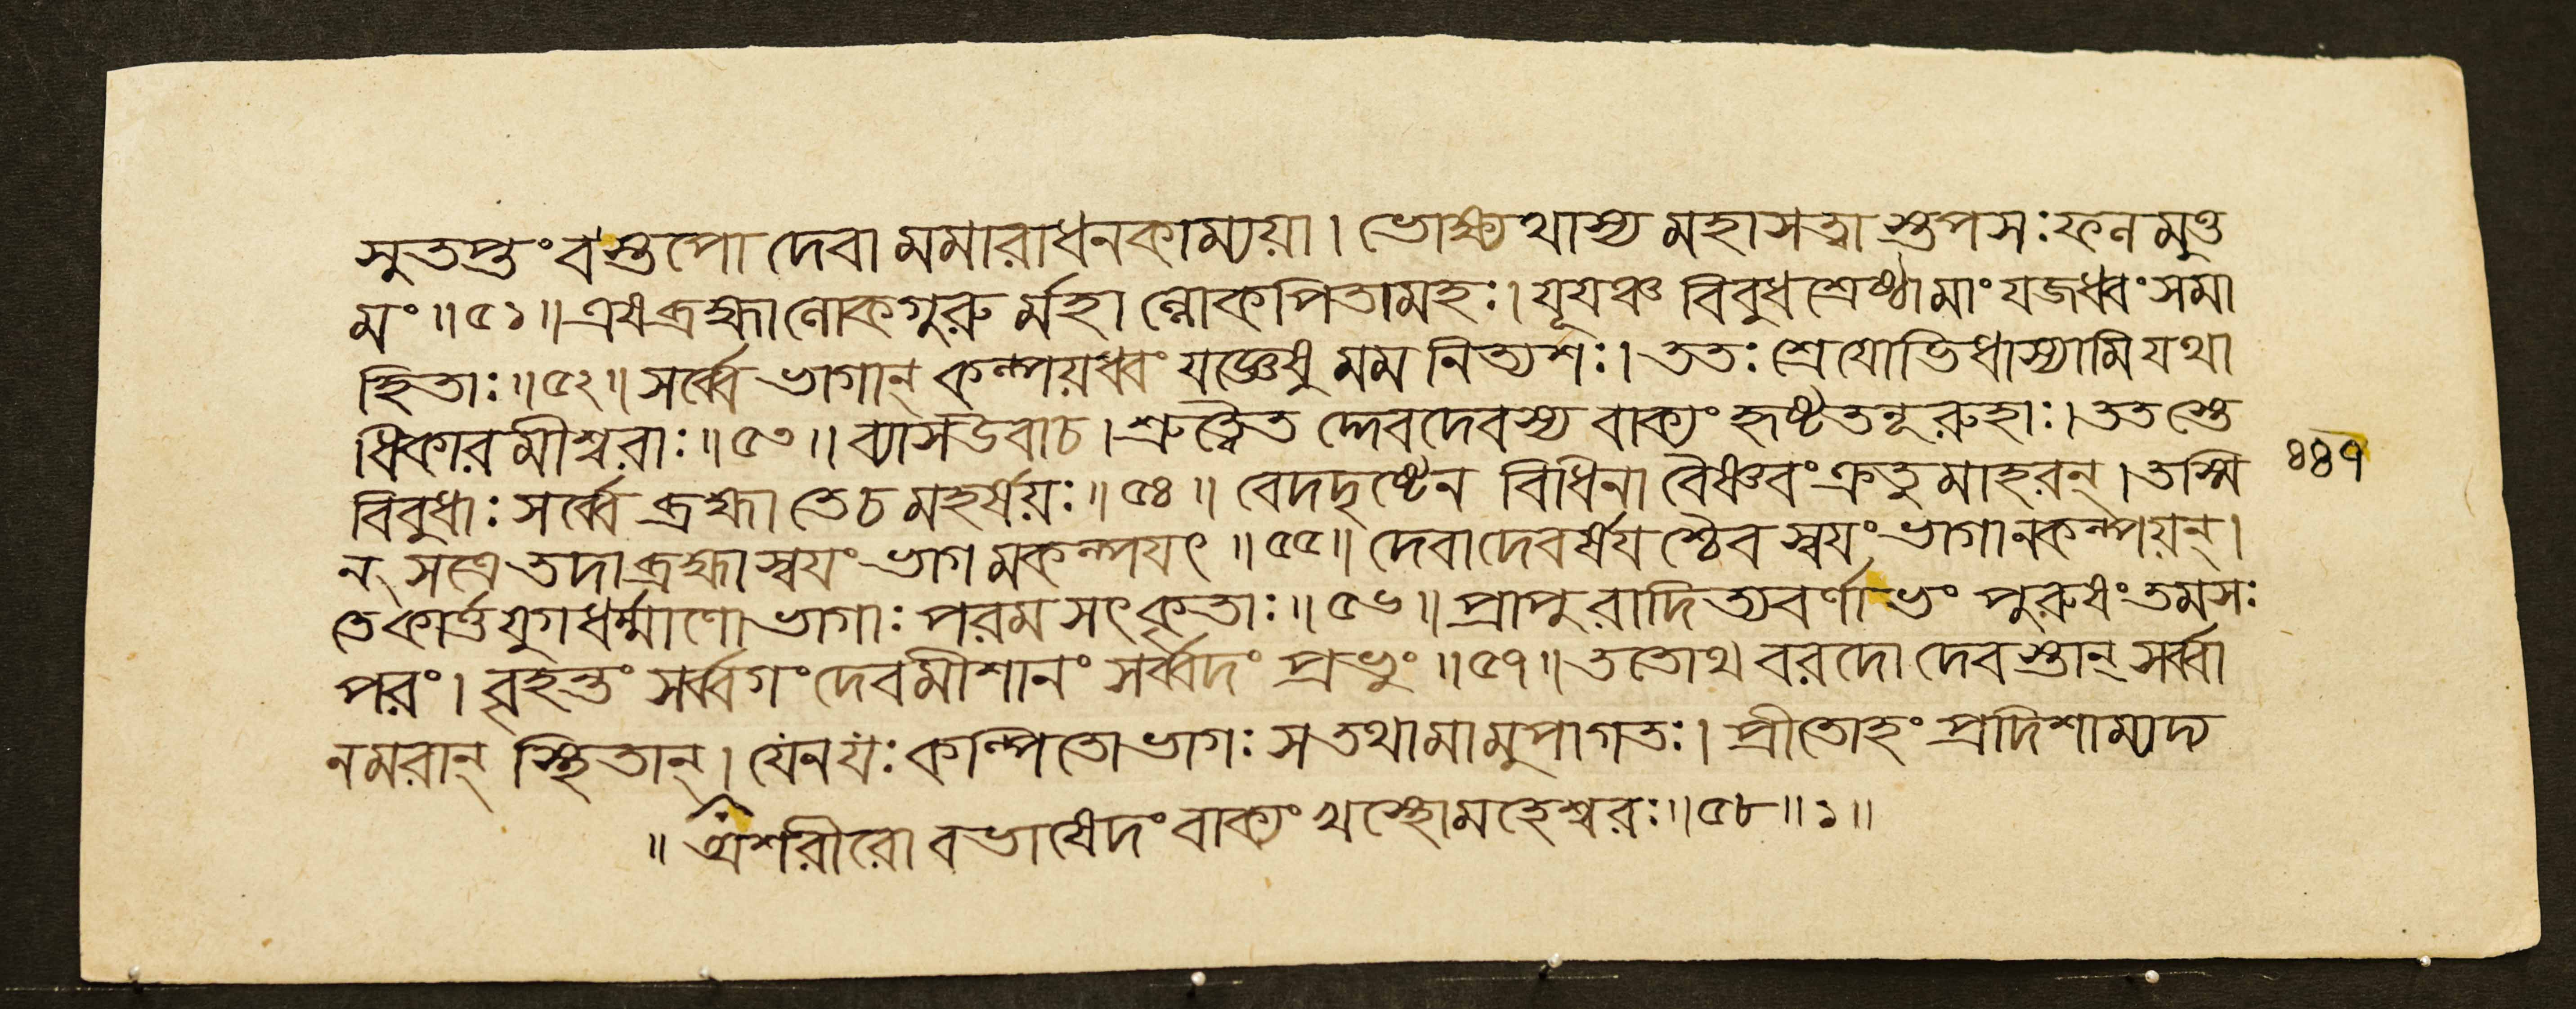 সুতপ্তং বস্তপো দেবা মমারাধনকাম্যয়া। ভোক্ষ্যথাস্য মহাসত্বাস্তপসঃ ফলমুত্ত
মং॥৫১॥এষ ব্রহ্মা লোকগুরু র্মহা ল্লোকপিতামহঃ। যূযঞ্চ বিবুধশ্রেষ্ঠামাং যজধ্বং সমা
হিতাঃ॥৫২॥ সর্ব্বে ভাগান্ কল্পয়ধ্বং যজ্ঞেষু মম নিত্যশঃ। ততঃ শ্রেযোভিধাস্যামি যথা
ধিকারমীশ্বরাঃ॥৫৩॥ ব্যাসউবাচ। শ্রুত্বৈত দ্দেবদেবস্য বাক্যং হৃষ্টতনূরুহাঃ। তত স্তে
বিবুধাঃ সর্ব্বে ব্রহ্মা তেচ মহর্ষয়ঃ॥৫৪॥ বেদদৃষ্টেন বিধিনা বৈষ্ণবং ক্রতুমাহরন্। তস্মি
ন্ সত্রে তদা ব্রহ্মা স্বযং ভাগমকল্পযৎ॥৫৫॥ দেবাদেবর্ষয শ্চৈব স্বযং ভাগানকল্পয়ন্।
তেকার্ত্তযুগধর্ম্মাণোভাগাঃ পরমসৎকৃতাঃ॥৫৬॥ প্রাপুরাদিত্যবর্ণাভং পুরুষং তমসঃ
পরং। বৃহন্তং সর্ব্বগং দেবমীশানং সর্ব্বদং প্রভুং॥৫৭॥ ততোথ বরদো দেবস্তান্ সর্ব্বা
নমরান্ স্থিতান্। যেনযঃ কল্পিতোভাগঃ সতথামামুপাগতঃ। প্রীতোহং প্রদিশাম্যদ্য
॥ অশরীরো বভাষেদং বাক্যং খস্থোমহেশ্বরঃ॥৫৮॥১॥
৪৪৭